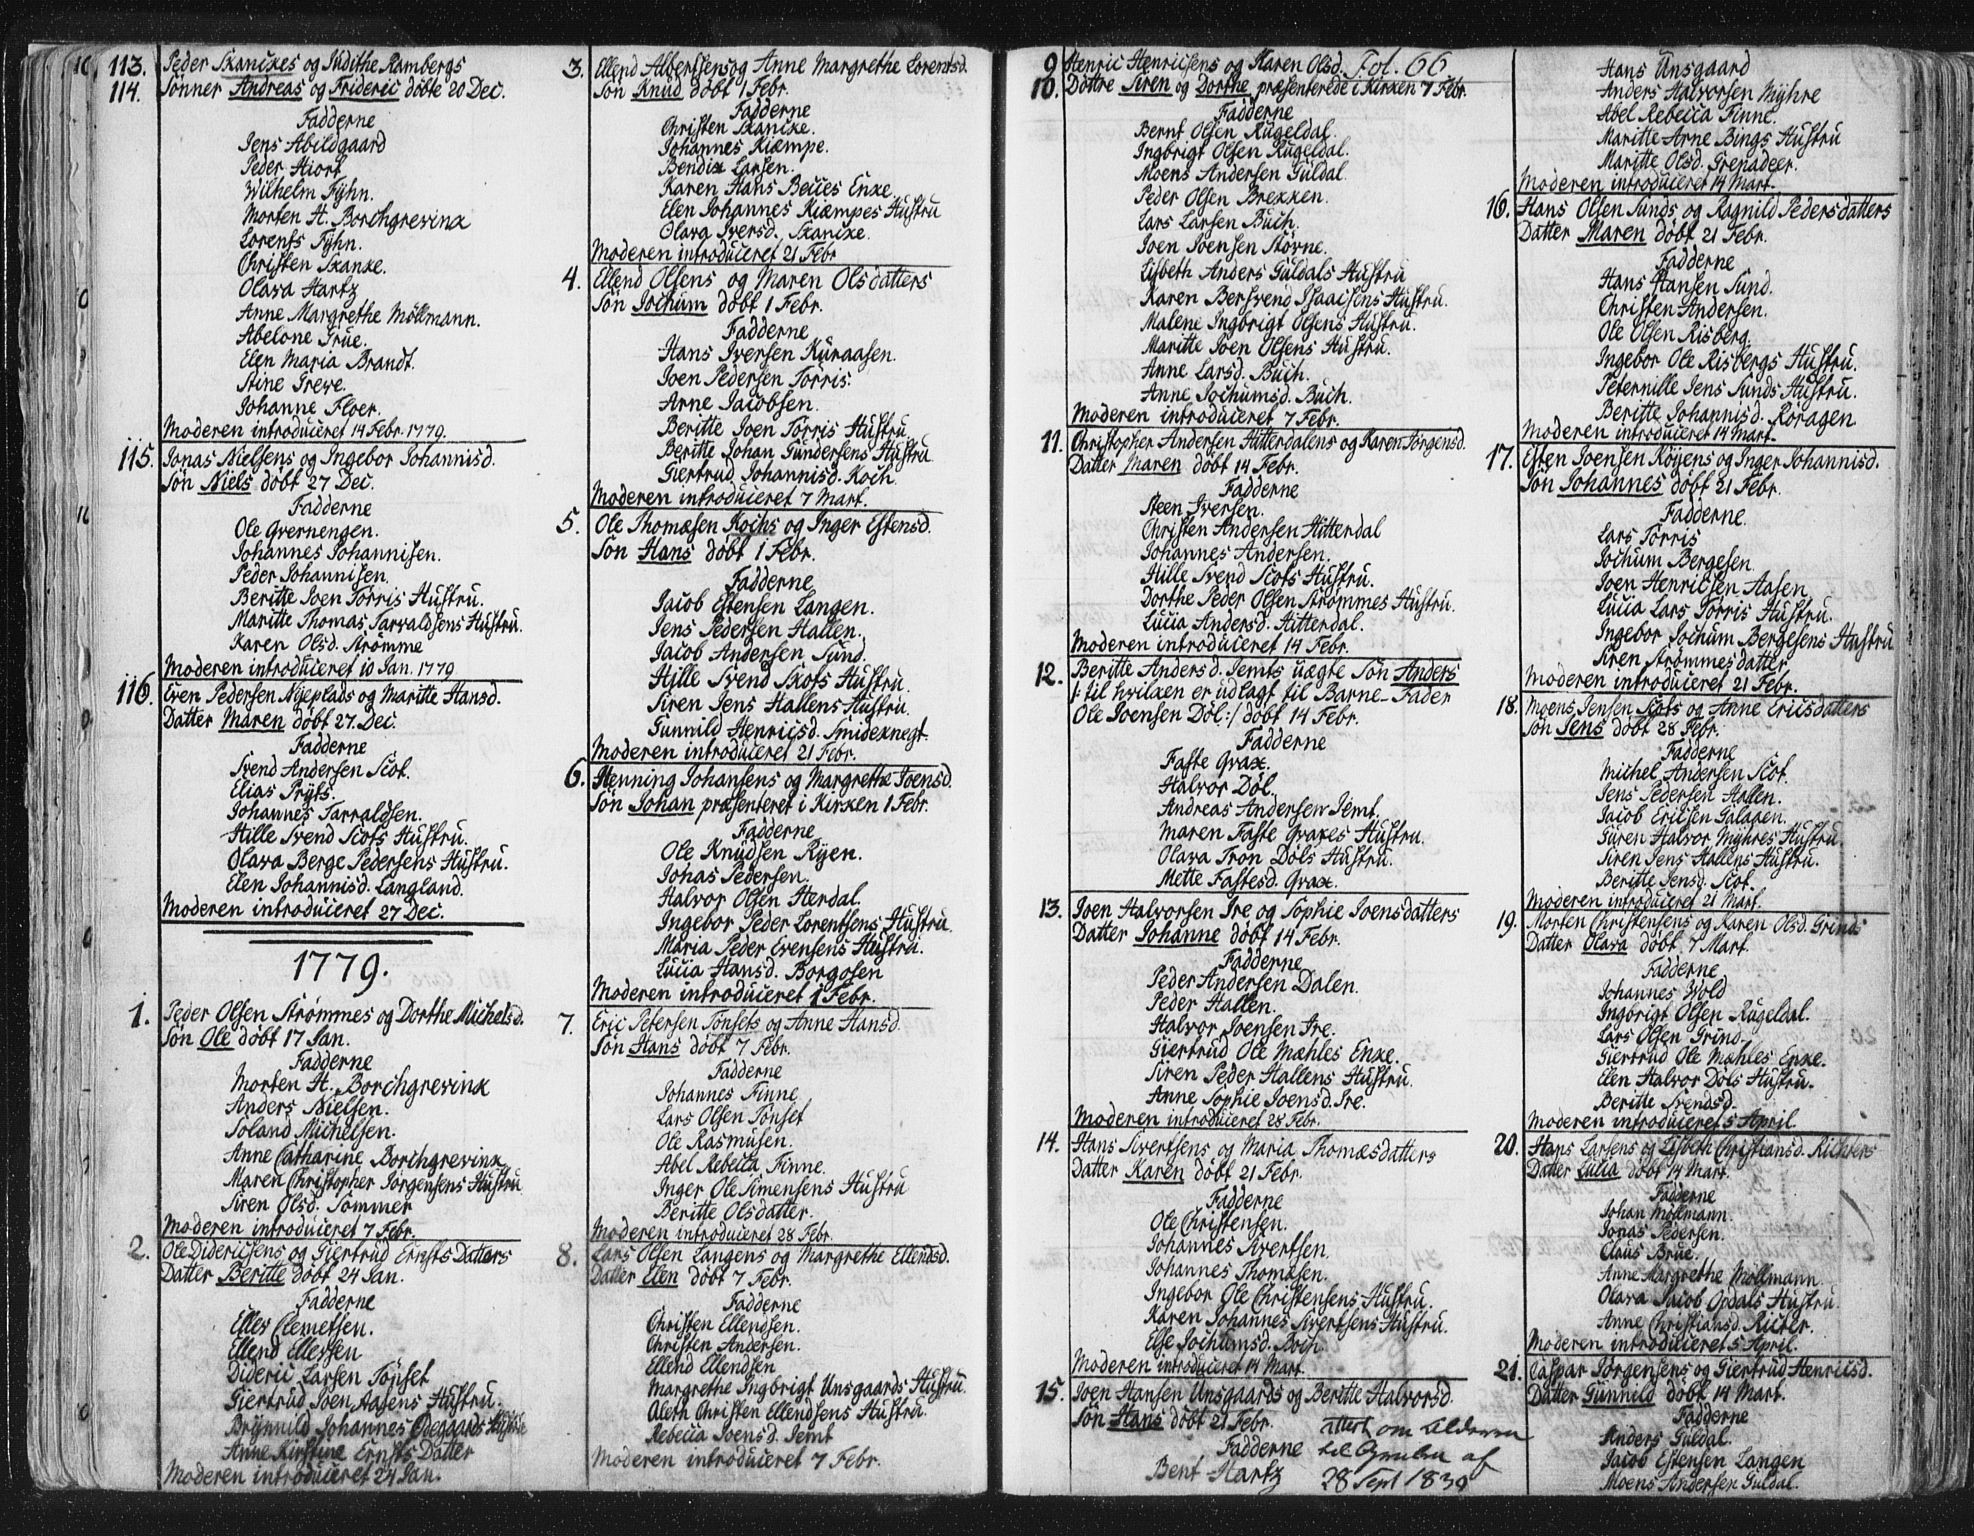 113. Peder Skanckes og Judithe Rambergs
114. Sønner Andreas og Frideric døbte 20 Dec.
Fadderne
Jens Abildgaard
Peder Hiort
Wilhelm Fyhn.
Morten H. Borchgrevinck
Lorents Fyhn.
Christen Skanke.
Olava Hartz
Anne Margrethe Möllmann.
Abelone Grue.
Elen Maria Brandt.
Stine Greve.
Johanne Floer.
Moderen introduceret 14 Febr. 1779.
115. Jonas Nielsens og Ingebor Johannisd.
Søn Niels døbt 27 Dec.
Fadderne
Ole Qvernengen.
Johannes Johannisen.
Peder Johannisen.
Beritte Joen Torris Hustru.
Maritte Thomas Tarraldsens Hustru.
Karen Olsd. Strømme
Moderen introduceret 10 Jan. 1779
116. Even Pedersen Nyeplads og Maritte Hansd.
Datter Maren døbt 27 Dec.
Fadderne
Svend Andersen Scot.
Elias Prÿts.
Johannes Tarraldsen.
Hille Svend Scots Hustru.
Olava Berge Pedersens Hustru.
Elen Johannisd. Langland.
Moderen introduceret 27 Dec.
1779.
1. Peder Olsen Strømmes og Dorthe Michelsd.
Søn Ole døbt 17 Jan.
Fadderne
Morten H. Borchgrevink
Anders Nielsen.
Soland Michelsen.
Anne Catharine Borchgrevink
Maren Christopher Jørgensens Hustru
Siren Olsd. Sommer
Moderen introduceret 7 Febr.
2. Ole Didericsens og Giertrud Ernsts Datters
Datter Beritte døbt 24 Jan.
Fadderne
Elles Clemetsen.
Ellend Ellessen
Dideric Larsen Tønset
Giertrud Joen Aasens Hustru.
Brynnild Johannes Ødegaards Hustrue
Anne Kirstine Ernsts Datter
Moderen introduceret 24 Jan.
3. Ellend Albertsens og Anne Margrethe Lorentsd.
Søn Knud døbt 1 Febr.
Fadderne
Christen Skancke.
Johannes Kiæmpe.
Bendix Larsen.
Karen Hans Beckes Enke.
Elen Johannes Kiæmpes Hustru
Olava Iversd. Skancke.
Moderen introduceret 21 Febr
4. Ellend Olsens og Maren Olsdatters
Søn Jochum døbt 1 Febr.
Fadderne
Hans Iversen Kuraasen.
Joen Pedersen Torris.
Arne Jacobsen.
Beritte Joen Torris Hustru.
Beritte Johan Gundersens Hustru
Giertrud Johannisd. Koch.
Moderen introduceret 7 Mart.
5. Ole Thomæsen Kochs og Inger Estensd.
Søn Hans døbt 1 Febr.
Fadderne
Jacob Estensen Langen.
Jens Pedersen Hallen.
Jacob Andersen Sund.
Hille Svend Skots Hustru.
Siren Jens Hallens Hustru.
Gunnild Henricsd. Smideknegt.
Moderen introduceret 21 Febr.
6. Henning Johansens og Margrethe Joensd.
Søn Johan præsenteret i Kirken 1 Febr.
Fadderne
Ole Knudsen Ryen.
Johas Pedersen.
Halvor Olsen Herdal.
Ingebor Peder Lorentsens Hustru.
Maria Peder Evensens Hustru.
Lucia Hansd. Borgosen
Moderen introduceret 1 Febr.
7. Eric Petersen Tønsets og Anne Hansd.
Søn Hans døbt 7 Febr.
Fadderne
Johannes Finne
Lars Olsen Tønset
Ole Rasmusen.
Abel Rebecca Finne.
Inger Ole Simensens Hustru
Beritte Olsdatter.
Moderen introduceret 28 Febr.
8. Lars Olsen Langens og Margrethe Ellendsd.
Datter Elen døbt 7 Febr.
Fadderne
Christen Ellendsen.
Christen Andersen.
Ellend Ellendsen
Margrethe Ingbrigt Unsgaards Hustru.
Aleth Christen Ellendsens Hustru.
Rebecca Joensd. Jemt
Moderen introduceret 7 Febr.
9 Henric Henricsens og Karen Olsd. Fol. 66
10. Døttre Siren og Dorthe præsenterede i Kirken 7 Febr.
Fadderne
Bernt Olsen Rugeldal.
Ingbrigt Olsen Rugeldal.
Moens Andersen Guldal.
Peder Olsen Brekken.
Lars Larsen Buch.
Joen Joensen Størne.
Lisbeth Anders Guldals Hustru
Karen Bersvend Isaacsens Hustru.
Malene Ingbrigt Olsens Hustru.
Maritte Joen Olsens Hustru.
Anne Larsd. Buch.
Anne Jochumsd. Buch.
Moderen introduceret 7 Febr.
11. Christopher Andersen Hitterdalens og Karen Jørgensd.
Datter Maren døbt 14 Febr.
Fadderne
Steen Iversen.
Christen Andersen Hitterdal
Johannes Andersen.
Hille Svend Scots Hustru.
Dorthe Peder Olsen Strømmes Hustru.
Lucia Andersd. Hitterdal.
Moderen introduceret 14 Febr.
12. Beritte Andersd. Jemts uægte Søn Anders
/: til hvilken er udlagt til Barne-Fader
Ole Joensen Døl :/ døbt 14 Febr.
Fadderne
Faste Qvax.
Halvor Døl.
Andreas Andersen Jemt.
Maren Faste Qvaxes Hustru.
Olava Tron Døls Hustru.
Mette Fastesd. Qvax.
13. Joen Halvorsen Ire og Sophie Joensdatters
Datter Johanne døbt 14 Febr.
Fadderne
Peder Andersen Dalen.
Peder Hallen.
Halvor Joensen Ire.
Giertrud Ole Mæhles Enke.
Siren Peder Hallens Hustru.
Anne Sophie Joensd. Ire.
Moderen introduceret 28 Febr.
14. Hans Sivertsens og Maria Thomæsdatters
Datter Karen døbt 21 Febr.
Fadderne
Ole Christensen.
Johannes Sivertsen.
Johannes Thomæsen.
Ingebor Ole Christensens Hustru.
Karen Johannes Sivertsens Hustru.
Else Jochumsd. Boch.
Moderen introduceret 14 Mart.
15. Joen Hansen Unsgaards og Beritte Halvorsd.
Søn Hans døbt 21 Febr. attest om Alderen
Fadderne til Gruben af
Bent Hartz 28 Sept 1839
Hans Unsgaard
Anders Halvorsen Myhre
Abel Rebecca Finne.
Maritte Arne Bings Hustru
Maritte Olsd. Grenadeer.
Moderen introduceret 14 Mart.
16. Hans Olsen Sunds og Ragnild Pedersdatters
Datter Maren døbt 21 Febr.
Fadderne
Hans Hansen Sund.
Christen Andersen.
Ole Olsen Risberg.
Ingebor Ole Risbergs Hustru.
Peternille Jens Sunds Hustru.
Beritte Johannisd. Koragen
Moderen introduceret 14 Mart.
17. Esten Joensen Koÿens og Inger Johannisd.
Søn Johannes døbt 21 Febr.
Fadderne.
Lars Torris
Jochum Bergesen.
Joen Henricsen Aasen
Lucia Lars Torris Hustru.
Ingebor Jochum Bergesens Hustru
Siren Strømmesdatter
Moderen introduceret 21 Febr.
18. Moens Jensen Scots og Anne Ericsdatters
Søn Jens døbt 28 Febr.
Fadderne
Michel Andersen Scot.
Jens Pedersen Hallen.
Jacob Ericsen Galagen.
Guren Halvor Myhres Hustru
Siren Jens Hallens Hustru.
Beritte Jensd. Scot.
Moderen introduceret 21 Mart.
19. Morten Christensens og Karen Olsd. Grinds
Datter Olava døbt 7 Mart.
Fadderne
Johannes Wold
Ingbrigt Olsen Rugeldal.
Lars Olsen Grind.
Giertrud Ole Mæhles Enke.
Elen Halvor Døls Hustru.
Beritte Svendsd.
Moderen introduceret 5 April
20. Hans Larsens og Lisbeth Christiansd. Richters
Datter Lucia døbt 14 Mart.
Fadderne
Johan Möllmann.
Jonas Pedersen.
Claus Brue.
Anne Margrethe Mollmann.
Olava Jacob Opdals Hustru.
Anne Christiansd. Ricter.
Moderen introduceret 5 April.
21. Caspar Jørgensens og Giertrud Henricsd.
Datter Gunneld døbt 14 Mart.
Fadderne
Anders Guldal.
Jacob Estensen Langen
Moens Andersen Guldal.